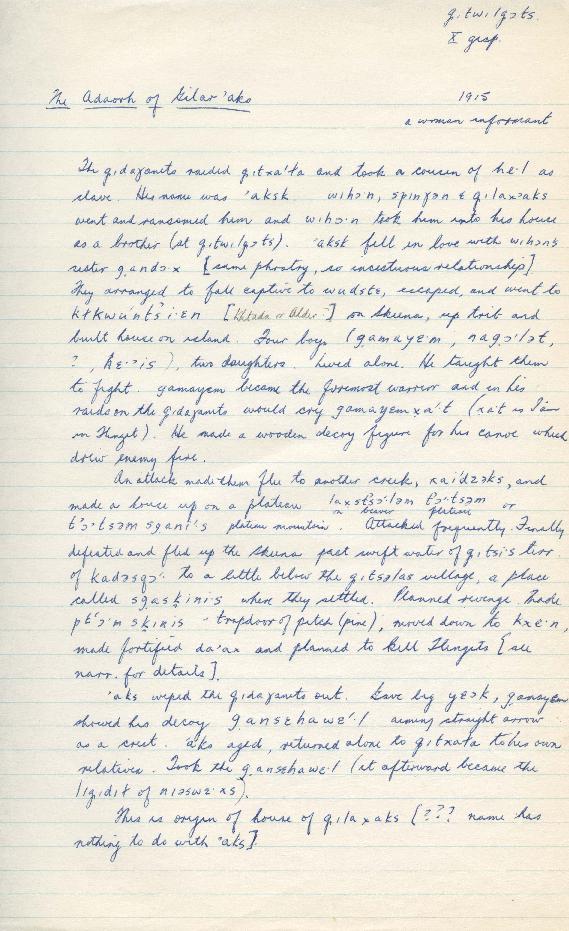 g.itwilgɔts.
X grsp.
The Adaorh of Gilar'aks 1915
a woman informant
The gidaɣanits raided gitxa'ta and took a cousin of he·l as
slave. His name was 'aksk. wihɔ·n, spinɣɔn & gilaxɔaks
went and ransomed him and wihɔ·n took him into his house
as a brother (at g.itwilgɔts). 'aksk fell in love with wihɔn's
sister g.andɔ·x [same phratry, so incestuous relationship]
They arranged to fall captive to wudstɛ, escaped, and went to
on Skeena, up trib and
built house on island. Four boys (gamayɛm, nagɔ'lɔt,
?, ), two daughters. Lived alone. He taught them
to fight. gamayɛm became the foremost warrior and in his
raids on the gidaɣanits would cry gamayɛm xa't (xa't is I am
in Tlinget). He made a wooden decoy figure for his canoe which
drew enemy fire.
An attack made them flee to another creek, kaidzɔks, and
made a house up on a plateau laxstsɔ'lɔm t'ɔ·tsɔm or
on beaver plateau
t'ɔ·tsɔm sgani's plateau mountain. Attacked frequently. Finally
defeated and fled up the Skeena past swift water of g.itsi·s terr.
of kadɔsqɔ· to a little below the g.itsɔlas village, a place
called sgaskinis where they settled. Planned revenge. Made
pt'ɔ·n skinis - trapdoor of pitch (pine), moved down to kxe·n,
made fortified da'ax and planned to kill Tlingets [see
narr. for details].
'aks wiped the gidaɣanits out. Gave big yɛɔk, gamayɛm
showed his decoy g.ansɛhawɛ'l aiming straight arrow
as a crest. 'aks aged, returned alone to gitxata to his own
relatives. Took the g.ansɛhawe·l (it afterward became the
ligidit of niɔswɛ·xs).
This is origin of house of gilaxaks [??? name has
nothing to do with 'aks].